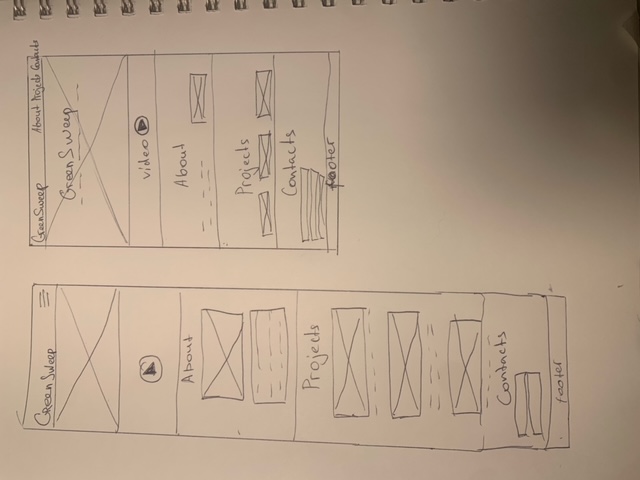 GreenSweep
About
Projects
Contacts
footer
GreenSweep About Projects Contacts
GreenSweep
video
About
Projects
Contacts
footer